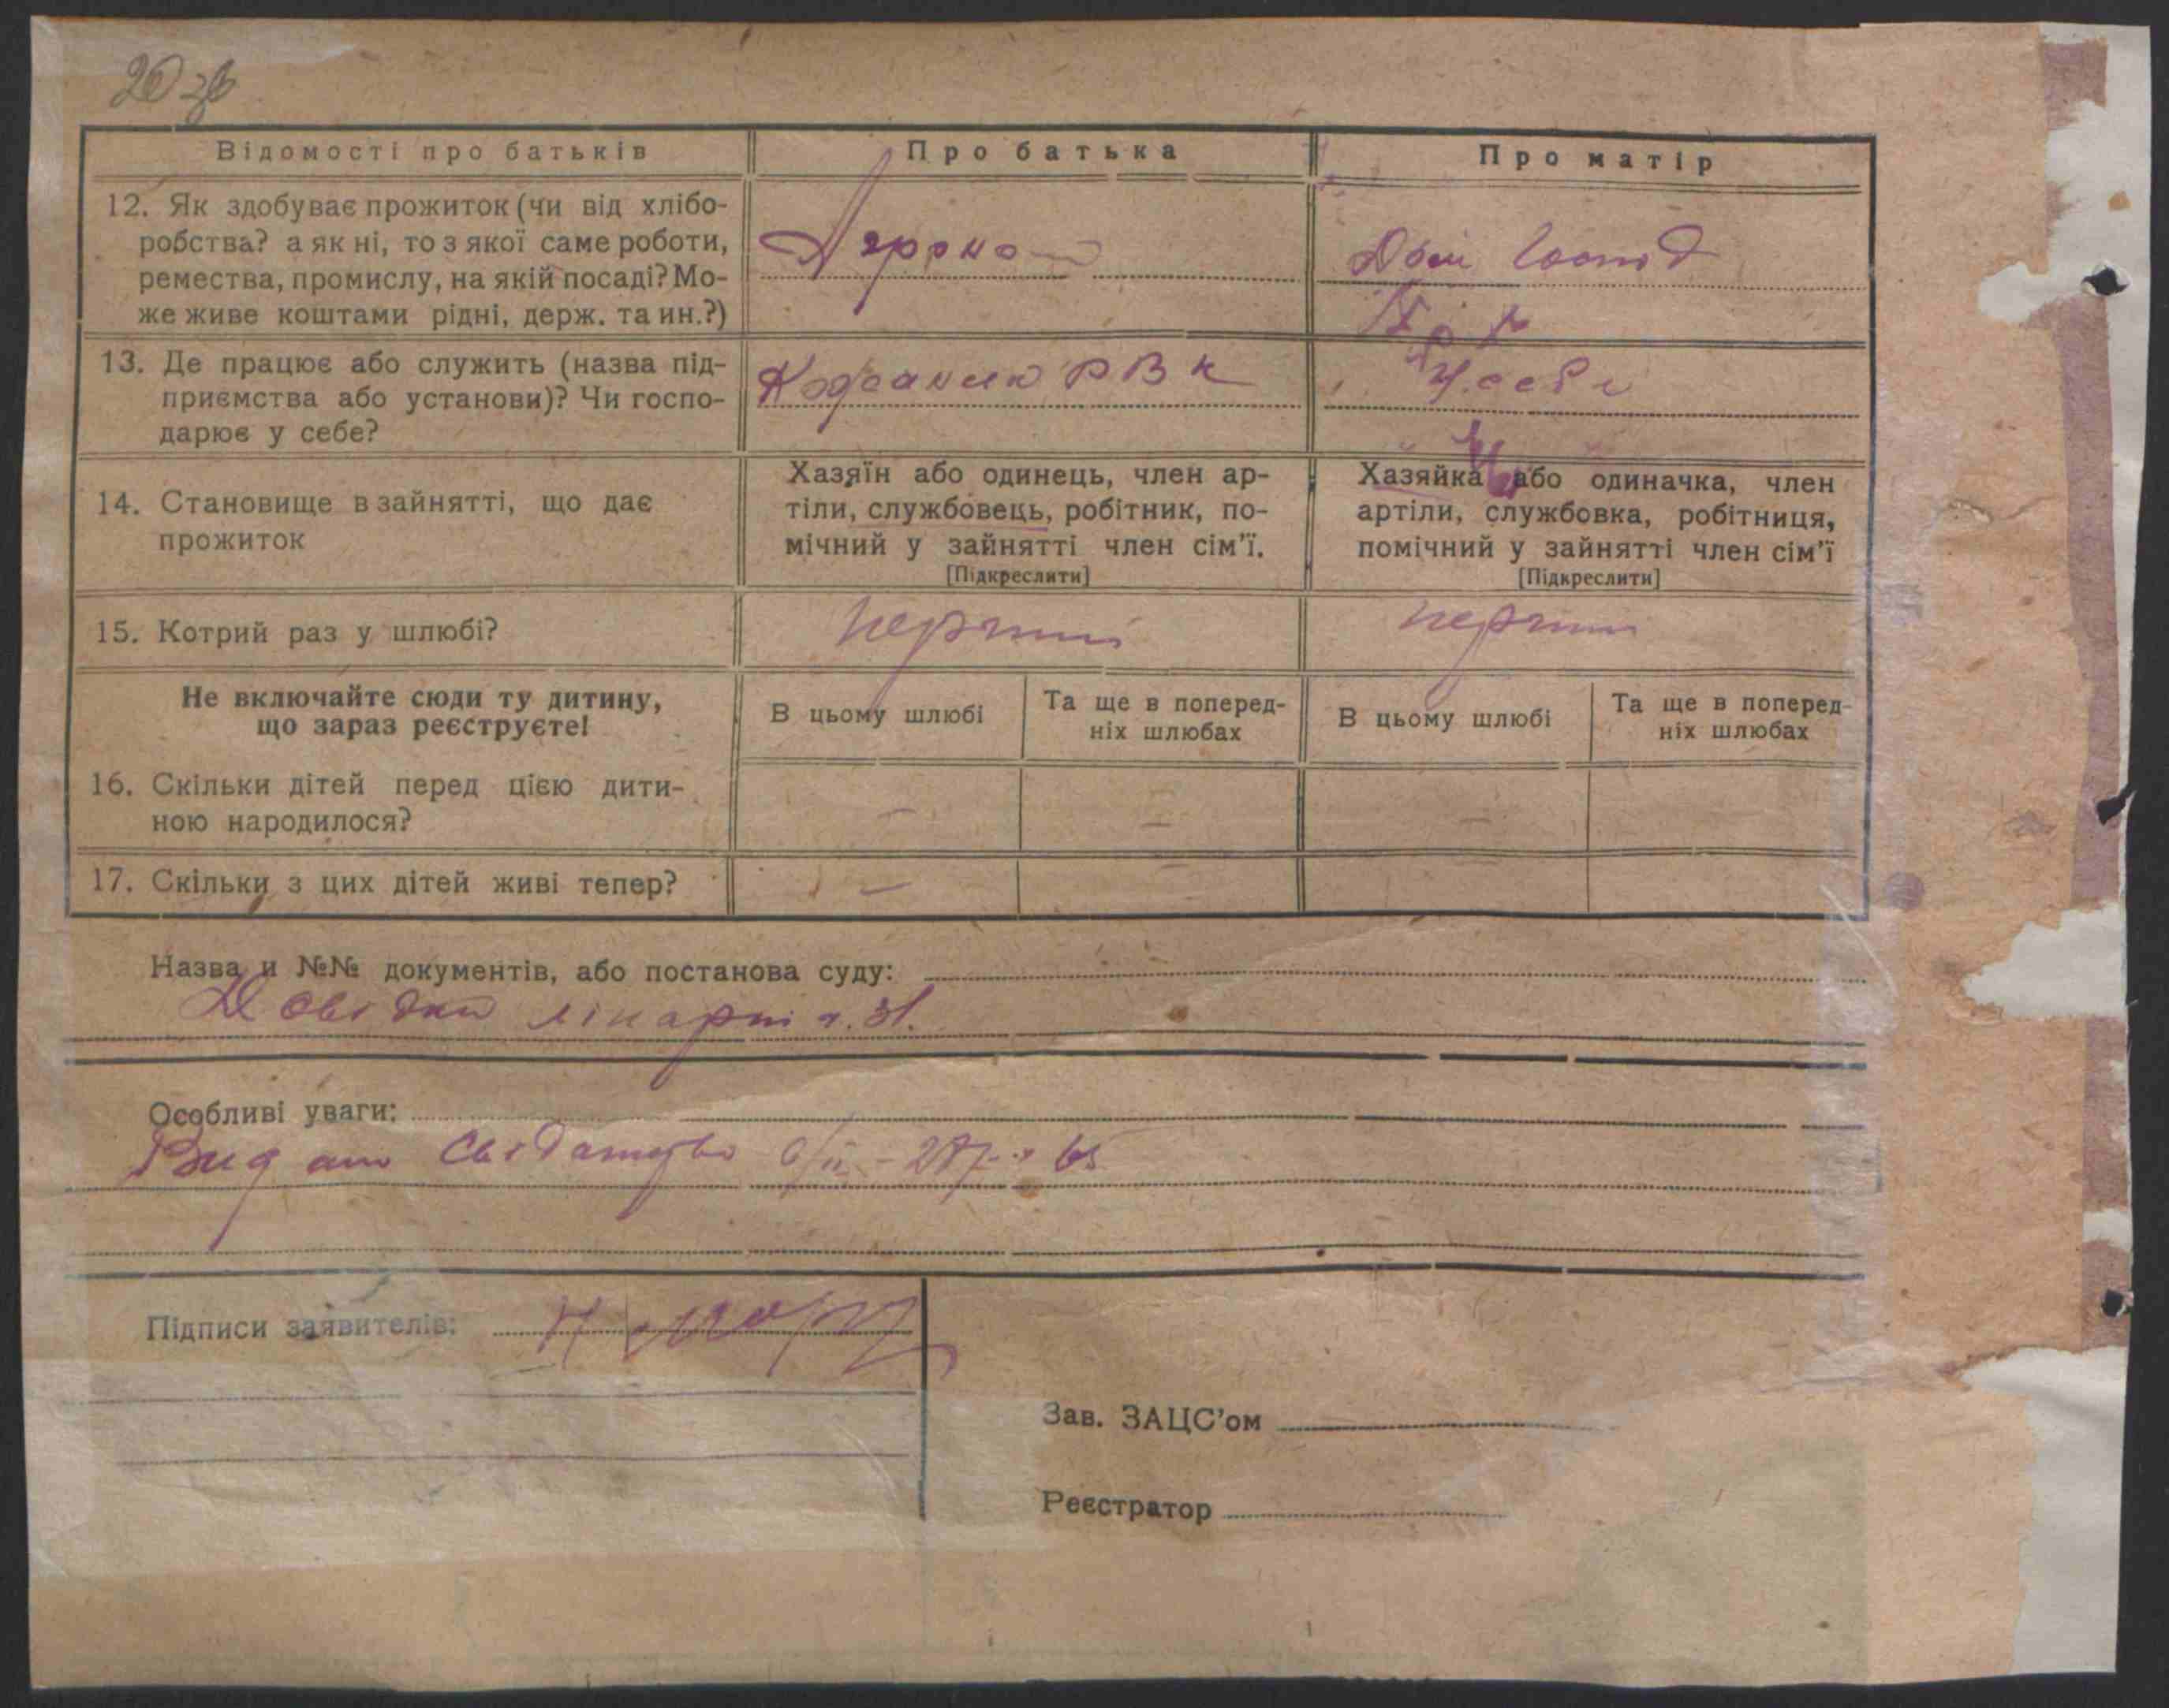 20 зв
Відомості про батьків
Про батька
Про матір
12. Як здобуває прожиток (чи від хлібо-
робства? а як ні, то з якої саме роботи,
ремества, промислу, на якій посаді? Мо-
же живе коштами рідні, держ. та ин.?)
Агроном
Дом господ
13. Де працює або служить (назва під-
приємства або установи)? Чи госпо-
дарює у себе?
РВК
У себе
14. Становище в зайнятті, що дає
прожиток
Хазяїн або одинець, член ар-
тіли, службовець, робітник, по-
мічний у зайнятті член сім'ї.
[Підкреслити]
Хазяйка або одиначка, член
артіли, службовка, робітниця,
помічний у зайнятті член сім'ї
[Підкреслити]
15. Котрий раз у шлюбі?
перший
перший
Не включайте сюди ту дитину,
що зараз реєструєте!
В цьому шлюбі
Та ще в поперед-
ніх шлюбах
В цьому шлюбі
Та ще в поперед-
ніх шлюбах
16. Скільки дітей перед цією дити-
ною народилося?
– – –
17. Скільки з цих дітей живі тепер?
–
Назва и №№ документів, або постанова суду:
Довідка лікарні
Особливі уваги:
Видано Свідатство
Підписи заявителів:
Зав. ЗАЦС'ом
Реєстратор